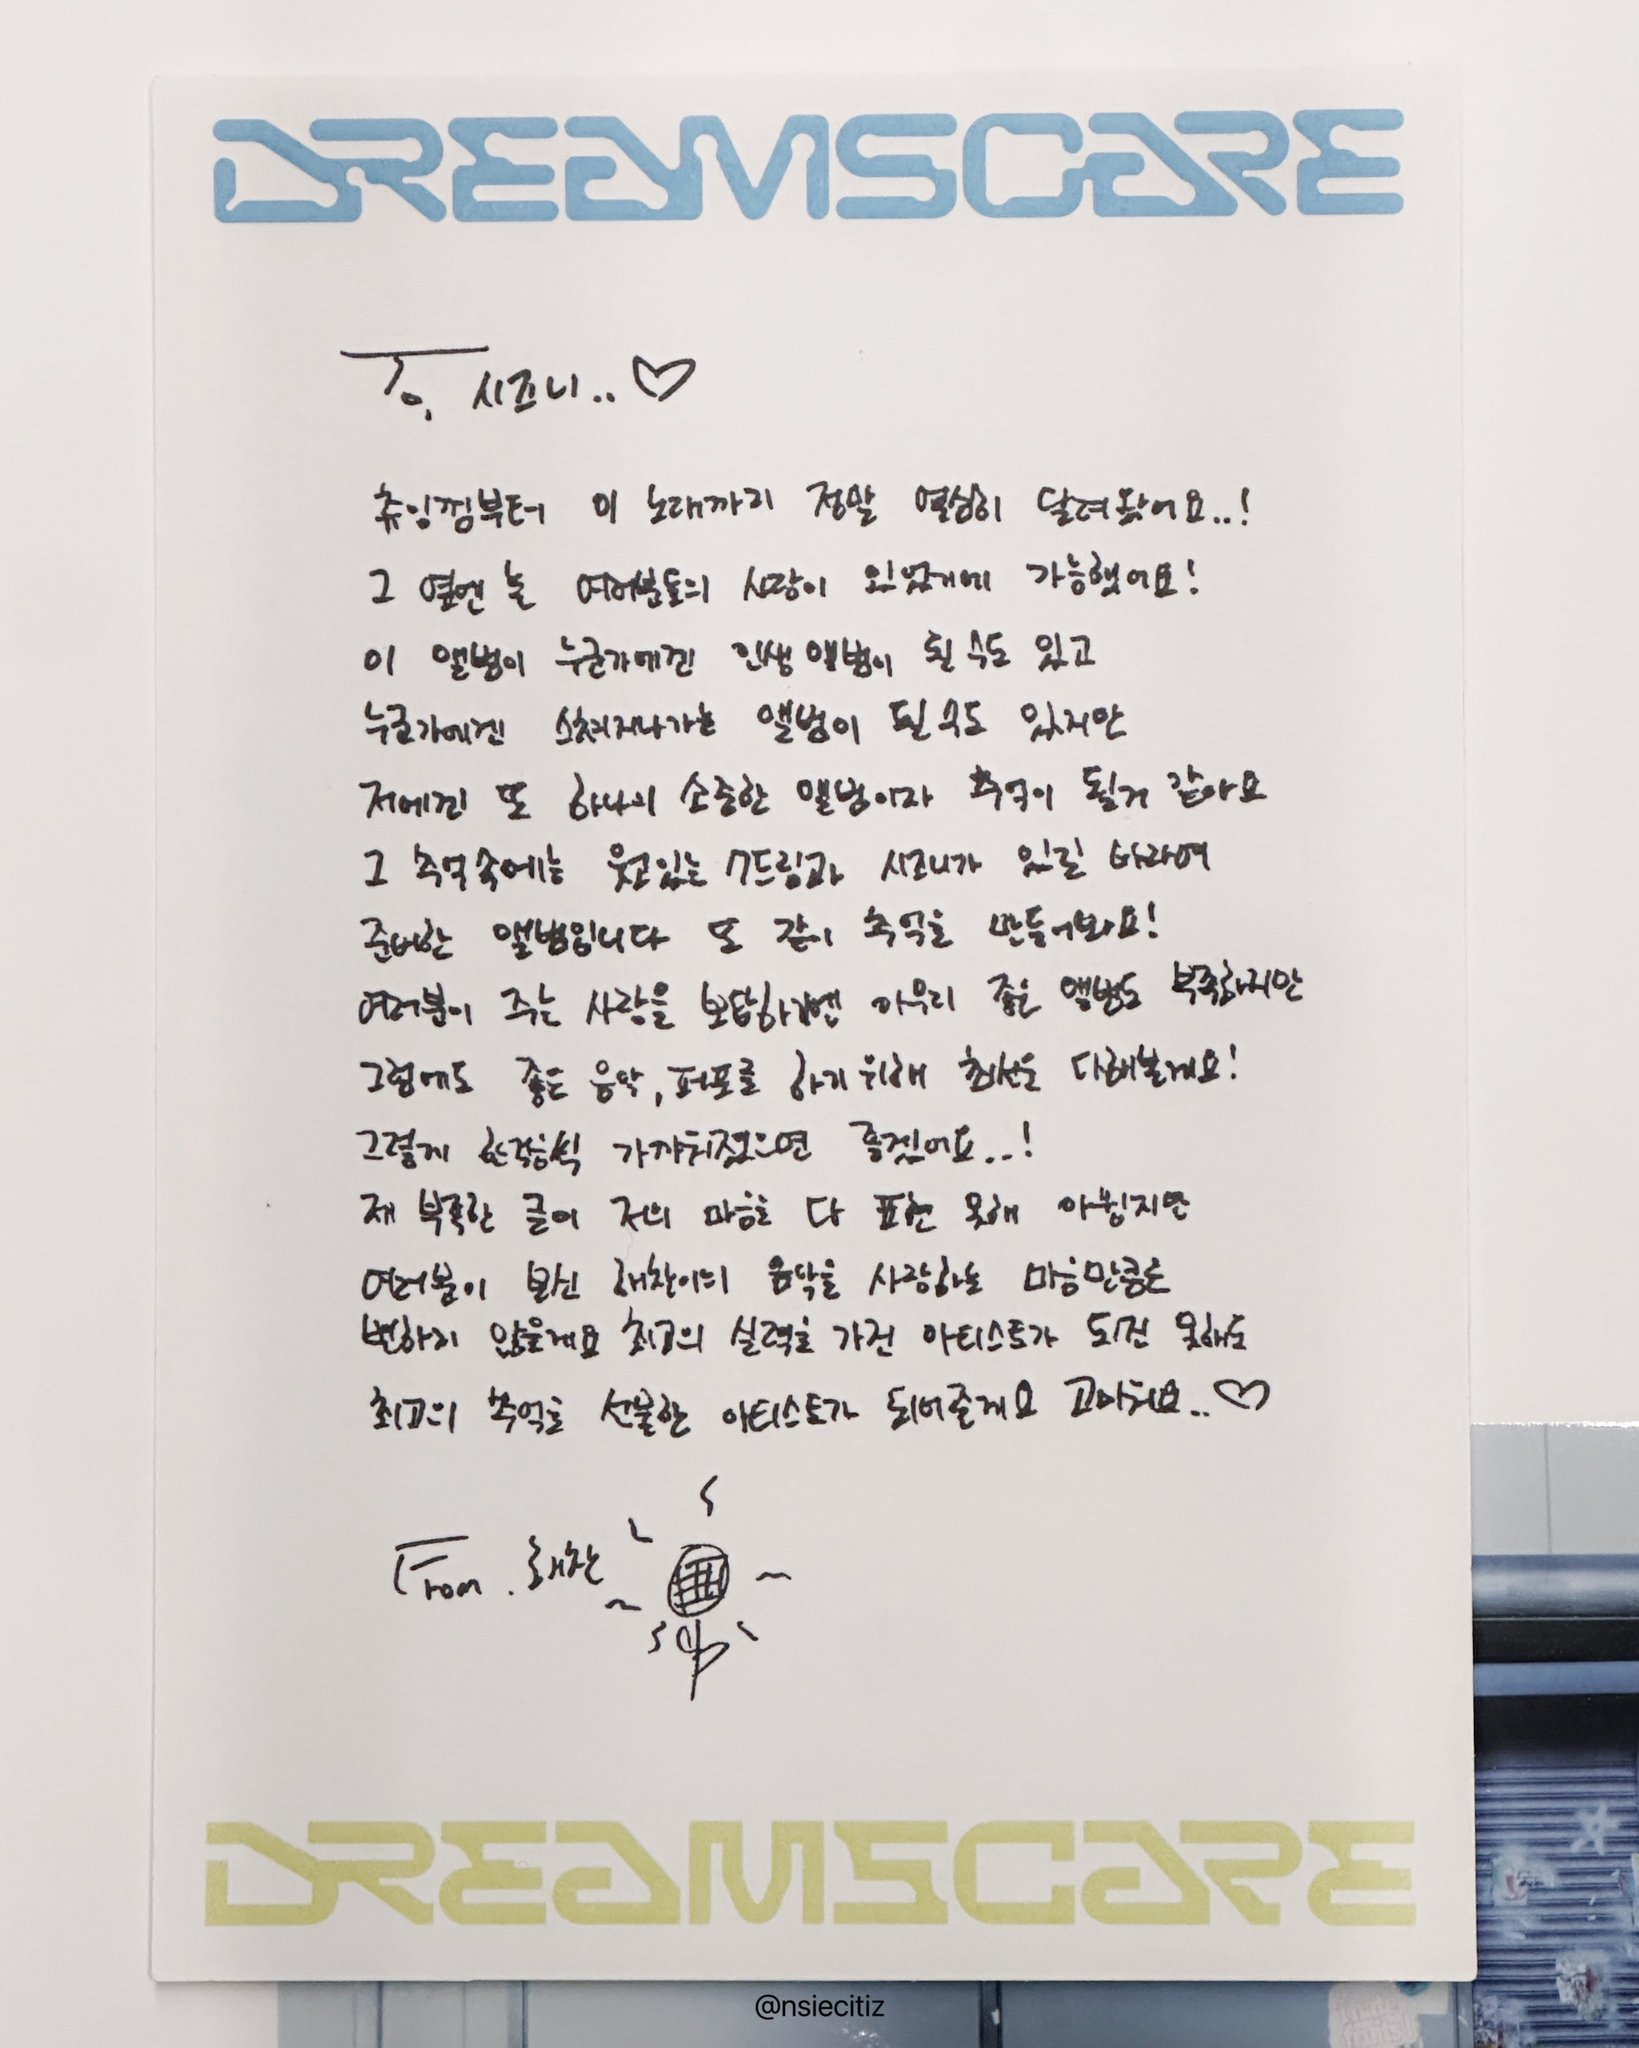 DREAMSCAPE
To. 시즈니..♡
츄잉껌부터 이 노래까지 정말 열심히 달려왔어요..!
그 옆엔 늘 여러분들의 사랑이 있었기에 가능했어요!
이 앨범이 누군가에겐 인생 앨범이 될 수도 있고
누군가에겐 스쳐지나가는 앨범이 될 수도 있지만
저에겐 또 하나의 소중한 앨범이자 추억이 될거 같아요
그 추억속에는 웃고있는 7드림과 시즈니가 있길 바라며
준비한 앨범입니다 또 같이 추억을 만들어봐요!
여러분이 주는 사랑을 보답하기엔 아무리 좋은 앨범도 부족하지만
그럼에도 좋은 음악, 퍼포를 하기 위해 최선을 다해볼게요!
그렇게 한걸음씩 가까워졌으면 좋겠어요..!
제 부족한 글이 저의 마음을 다 표현 못해 아쉽지만
여러분이 보신 해찬이의 음악을 사랑하는 마음만큼은
변하지 않을게요 최고의 실력을 가진 아티스트가 되진 못해도
최고의 추억을 선물한 아티스트가 되어줄게요 고마워요..♡
From. 해찬
DREAMSCAPE
@nsiecitiz